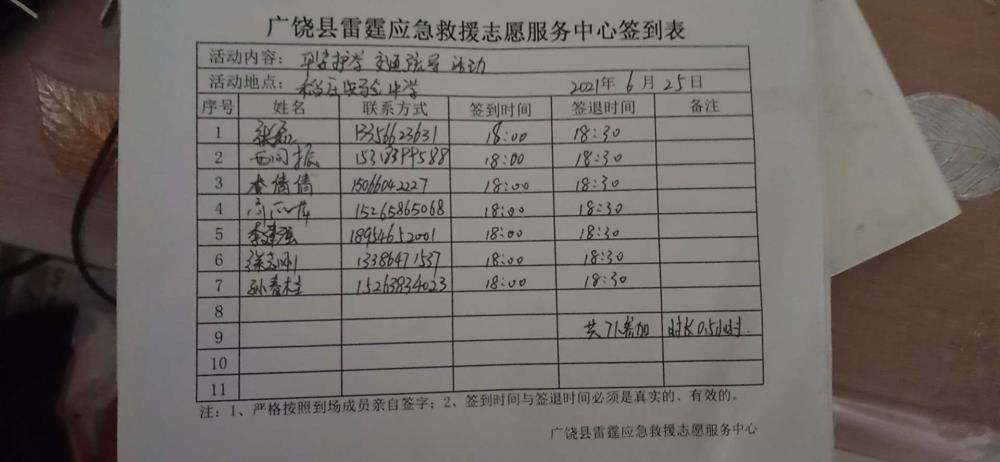 广饶县雷霆应急救援志愿服务中心签到表
活动内容：平安护学 交通疏导 活动
活动地点： 中学 2021年6月25日
序号 姓名 联系方式 签到时间 签退时间 备注
1 13356623631 18:00 18:30
2 西同振 15318399588 18:00 18:30
3 李倩倩 15066042227 18:00 18:30
4 15265865068 18:00 18:30
5 李建强 18954652001 18:00 18:30
6 13386471537 18:00 18:30
7 孙春桂 15263834023 18:00 18:30
8
9 共7人参加 时长0.5小时.
10
11
注：1、严格按照到场成员亲自签字；2、签到时间与签退时间必须是真实的、有效的。
广饶县雷霆应急救援志愿服务中心